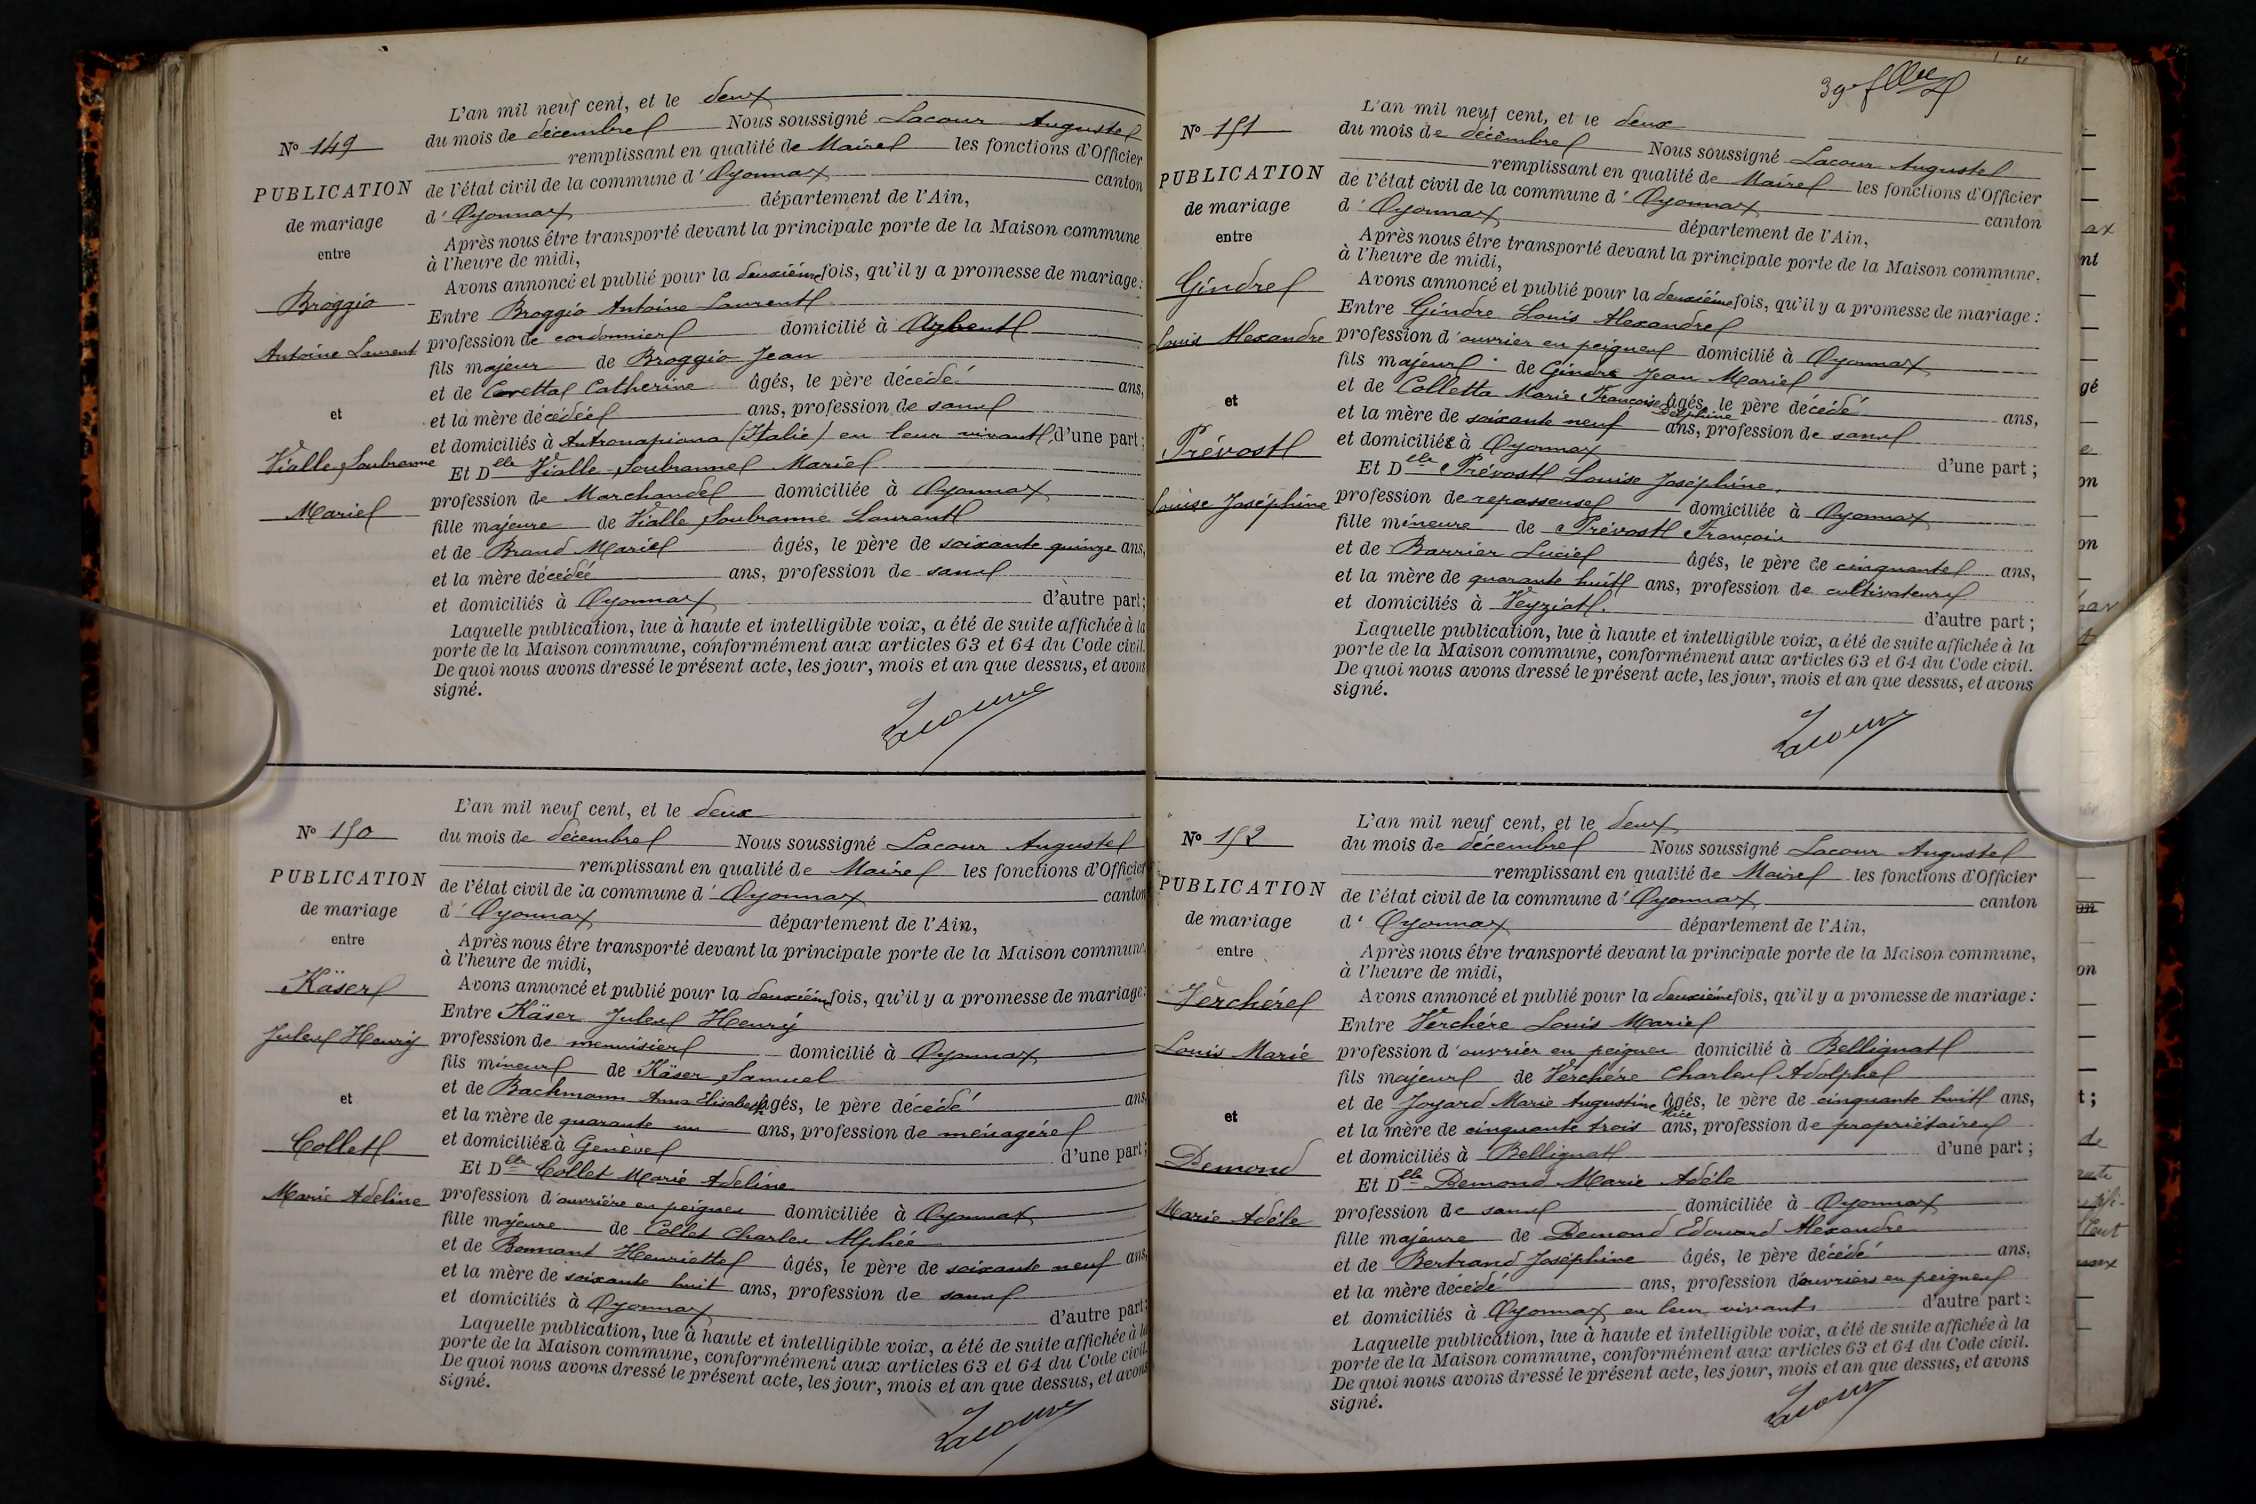 L'an mil neuf cent, et le deux
N° 149
du mois de décembre Nous soussigné Lacour Auguste
remplissant en qualité de Maire les fonctions d'Officier
PUBLICATION
de l'état civil de la commune d' Oyonnax canton
de mariage
d' Oyonnax département de l'Ain,
entre
Après nous être transporté devant la principale porte de la Maison commune
à l'heure de midi,
Avons annoncé et publié pour la deuxième fois, qu'il y a promesse de mariage:
Broggio
Entre Broggio Antoine Laurent
Antoine Laurent
profession de cordonnier domicilié à
fils majeur de Broggio Jean
et de Coretta Catherine âgés, le père décédé ans,
et
et la mère décédée ans, profession de sans
et domiciliés à Antronapiana (Italie) en leur vivant, d'une part;
Vialle Soubranne
Et Delle Vialle Soubranne Marie
Marie
profession de Marchande domiciliée à Oyonnax
fille majeure de Vialle Soubranne Laurent
et de Brand Marie âgés, le père de soixante quinze ans,
et la mère décédée ans, profession de sans
et domiciliés à Oyonnax d'autre part;
Laquelle publication, lue à haute et intelligible voix, a été de suite affichée à la
porte de la Maison commune, conformément aux articles 63 et 64 du Code civil.
De quoi nous avons dressé le présent acte, les jour, mois et an que dessus, et avons
signé.
Lacour
L'an mil neuf cent, et le deux
N° 150
du mois de décembre Nous soussigné Lacour Auguste
remplissant en qualité de Maire les fonctions d'Officier
PUBLICATION
de l'état civil de la commune d' Oyonnax canton
de mariage
d' Oyonnax département de l'Ain,
entre
Après nous être transporté devant la principale porte de la Maison commune,
à l'heure de midi,
Käser
Avons annoncé et publié pour la deuxième fois, qu'il y a promesse de mariage:
Entre Käser Jules Henrÿ
Jules Henrÿ
profession de menuisier domicilié à Oyonnax
fils mineur de Käser Samuel
et de Bachmann Anna Elisabeth âgés, le père décédé ans,
et
et la mère de quarante un ans, profession de ménagère
et domiciliée à Genève d'une part;
Collet
Et Delle Collet Marie Adeline
Marie Adeline
profession d'ouvrière en peignes domiciliée à Oyonnax
fille majeure de Collet Charles Alphée
et de Bonnant Henriette âgés, le père de soixante neuf ans,
et la mère de soixante huit ans, profession de sans
et domiciliés à Oyonnax d'autre part;
Laquelle publication, lue à haute et intelligible voix, a été de suite affichée à la
porte de la Maison commune, conformément aux articles 63 et 64 du Code civil.
De quoi nous avons dressé le présent acte, les jour, mois et an que dessus, et avons
signé.
Lacour
39e
L'an mil neuf cent, et le deux
N° 151
du mois de décembre Nous soussigné Lacour Auguste
remplissant en qualité de Maire les fonctions d'Officier
PUBLICATION
de l'état civil de la commune d' Oyonnax canton
de mariage
d' Oyonnax département de l'Ain,
entre
Après nous être transporté devant la principale porte de la Maison commune,
à l'heure de midi,
Gindre
Avons annoncé et publié pour la deuxième fois, qu'il y a promesse de mariage:
Entre Gindre Louis Alexandre
Louis Alexandre
profession d'ouvrier en peignes domicilié à Oyonnax
fils majeur de Gindre Jean Marie
et de Colletta Marie Françoise Delphine âgés, le père décédé ans,
et
et la mère de soixante neuf ans, profession de sans
et domiciliée à Oyonnax d'une part;
Prévost
Et Delle Prévost Louise Joséphine,
Louise Joséphine
profession de repasseuse domiciliée à Oyonnax
fille mineure de Prévost François
et de Barrier Lucie âgés, le père de cinquante ans,
et la mère de quarante huit ans, profession de cultivateurs
et domiciliés à Veyziat. d'autre part;
Laquelle publication, lue à haute et intelligible voix, a été de suite affichée à la
porte de la Maison commune, conformément aux articles 63 et 64 du Code civil.
De quoi nous avons dressé le présent acte, les jour, mois et an que dessus, et avons
signé.
Lacour
L'an mil neuf cent, et le deux
N° 152
du mois de décembre Nous soussigné Lacour Auguste
remplissant en qualité de Maire les fonctions d'Officier
PUBLICATION
de l'état civil de la commune d' Oyonnax canton
de mariage
d' Oyonnax département de l'Ain,
entre
Après nous être transporté devant la principale porte de la Maison commune,
à l'heure de midi,
Verchère
Avons annoncé et publié pour la deuxième fois, qu'il y a promesse de mariage:
Entre Verchère Louis Marie
Louis Marie
profession d'ouvrier en peignes domicilié à Bellignat
fils majeur de Verchère Charles Adolphe
et de Joyard Marie Augustine Alice âgés, le père de cinquante huit ans,
et
et la mère de cinquante trois ans, profession de propriétaires
et domiciliés à Bellignat d'une part;
Demond
Et Delle Demond Marie Adèle
Marie Adèle
profession de sans domiciliée à Oyonnax
fille majeure de Demond Edouard Alexandre
et de Bertrand Joséphine âgés, le père décédé ans,
et la mère décédé ans, profession d'ouvriers en peignes
et domiciliés à Oyonnax en leur vivant. d'autre part;
Laquelle publication, lue à haute et intelligible voix, a été de suite affichée à la
porte de la Maison commune, conformément aux articles 63 et 64 du Code civil.
De quoi nous avons dressé le présent acte, les jour, mois et an que dessus, et avons
signé.
Lacour